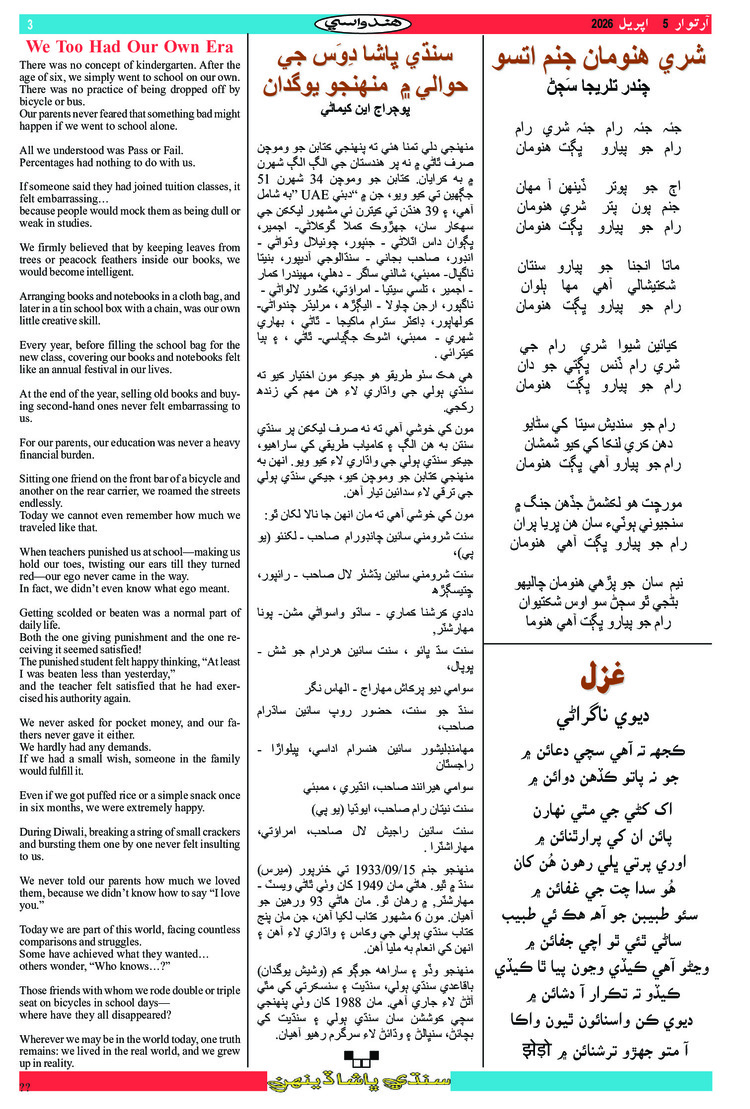 3
هندواسي
آرتوار 5 اپريل 2026
We Too Had Our Own Era
There was no concept of kindergarten. After the
age of six, we simply went to school on our own.
There was no practice of being dropped off by
bicycle or bus.
Our parents never feared that something bad might
happen if we went to school alone.
All we understood was Pass or Fail.
Percentages had nothing to do with us.
If someone said they had joined tuition classes, it
felt embarrassing…
because people would mock them as being dull or
weak in studies.
We firmly believed that by keeping leaves from
trees or peacock feathers inside our books, we
would become intelligent.
Arranging books and notebooks in a cloth bag, and
later in a tin school box with a chain, was our own
little creative skill.
Every year, before filling the school bag for the
new class, covering our books and notebooks felt
like an annual festival in our lives.
At the end of the year, selling old books and buy-
ing second-hand ones never felt embarrassing to
us.
For our parents, our education was never a heavy
financial burden.
Sitting one friend on the front bar of a bicycle and
another on the rear carrier, we roamed the streets
endlessly.
Today we cannot even remember how much we
traveled like that.
When teachers punished us at school—making us
hold our toes, twisting our ears till they turned
red—our ego never came in the way.
In fact, we didn’t even know what ego meant.
Getting scolded or beaten was a normal part of
daily life.
Both the one giving punishment and the one re-
ceiving it seemed satisfied!
The punished student felt happy thinking, “At least
I was beaten less than yesterday,”
and the teacher felt satisfied that he had exer-
cised his authority again.
We never asked for pocket money, and our fa-
thers never gave it either.
We hardly had any demands.
If we had a small wish, someone in the family
would fulfill it.
Even if we got puffed rice or a simple snack once
in six months, we were extremely happy.
During Diwali, breaking a string of small crackers
and bursting them one by one never felt insulting
to us.
We never told our parents how much we loved
them, because we didn’t know how to say “I love
you.”
Today we are part of this world, facing countless
comparisons and struggles.
Some have achieved what they wanted…
others wonder, “Who knows…?”
Those friends with whom we rode double or triple
seat on bicycles in school days—
where have they all disappeared?
Wherever we may be in the world today, one truth
remains: we lived in the real world, and we grew
up in reality.
سنڌي ڀاشا دِوَس جي
حوالي ۾ منهنجو يوگدان
ڀوڄراج اين کيماڻي
منهنجي دلي تمنا هئي ته پنهنجي ڪتابن جو وموچن
صرف ٿاڻي ۾ نه پر هندستان جي الڳ الڳ شهرن
۾ به ڪرايان. ڪتابن جو وموچن 34 شهرن 51
جڳهين تي ڪيو ويو، جن ۾ “دبئي UAE” به شامل
آهي، ۽ 39 هنڌن تي ڪيترن ئي مشهور ليکڪن جي
سهڪار سان، جهڙوڪ ڪملا گوڪلاڻي- اجمير،
ڀڳوان داس اٽلاڻي - جئپور، چونيلال وڌواڻي -
اندور، صاحب بجاني - سنڌالوجي آديپور، بنيتا
ناگپال- ممبئي، شالني ساگر - دهلي، مهيندرا ڪمار
- اجمير ، تلسي سيتيا - امراؤتي، ڪشور لالواڻي -
ناگپور، ارجن چاولا - اليڳڙهه ، مرليڌر چندواڻي-
کولهاپور، ڊاڪٽر سترام ماکيجا - ٿاڻي ، بهاري
شهري - ممبئي، اشوڪ جڳياسي- ٿاڻي ، ۽ ٻيا
ڪيترائي .
هي هڪ سٺو طريقو هو جيڪو مون اختيار ڪيو ته
سنڌي ٻولي جي واڌاري لاءِ هن مهم کي زنده
رکجي.
مون کي خوشي آهي ته نه صرف ليکڪن پر سنڌي
سنتن به هن الڳ ۽ ڪامياب طريقي کي ساراهيو،
جيڪو سنڌي ٻولي جي واڌاري لاءِ ڪيو ويو. انهن به
منهنجي ڪتابن جو وموچن ڪيو، جيڪي سنڌي ٻولي
جي ترقي لاءِ سدائين تيار آهن.
مون کي خوشي آهي ته مان انهن جا نالا لکان ٿو:
سنت شرومني سائين چاندورام صاحب - لکنئو (يو
پي)،
سنت شرومني سائين يڌشٽر لال صاحب - رائپور،
ڇتيسڳڙهه
دادي ڪرشنا ڪماري - ساڌو واسواڻي مشن- پونا
مهارشٽر,
سنت سڌ ڀائو ، سنت سائين هردرام جو شش -
ڀوپال،
سوامي ديو پرڪاش مهاراج - الهاس نگر
سنڌ جو سنت، حضور روپ سائين ساڌرام
صاحب،
مهامنڊليشور سائين هنسرام اداسي، ڀيلواڙا -
راجسٿان
سوامي هيرانند صاحب، انڌيري ، ممبئي
سنت نيتان رام صاحب، ايوڌيا (يو پي)
سنت سائين راجيش لال صاحب، امراؤتي،
مهاراشٽرا .
منهنجو جنم 1933/09/15 تي خئرپور (ميرس)
سنڌ ۾ ٿيو. هاڻي مان 1949 کان وٺي ٿاڻي ويسٽ -
مهارشٽر, ۾ رهان ٿو. مان هاڻي 93 ورهين جو
آهيان. مون 6 مشهور ڪتاب لکيا آهن، جن مان پنج
ڪتاب سنڌي ٻولي جي وڪاس ۽ واڌاري لاءِ آهن ۽
انهن کي انعام به مليا آهن.
منهنجو وڏو ۽ ساراهه جوڳو ڪم (وشيش يوگدان)
باقاعدي سنڌي ٻولي، سنڌيت ۽ سنسڪرتي کي مٿي
آڻڻ لاءِ جاري آهي. مان 1988 کان وٺي پنهنجي
سچي ڪوششن سان سنڌي ٻولي ۽ سنڌيت کي
بچائڻ، سنڀالڻ ۽ وڌائڻ لاءِ سرگرم رهيو آهيان.
شري هنومان جنم اتسو
چندر تلريجا سَڄڻ
جئہ جئہ رام جئہ شري رام
رام جو پيارو ڀڳت هنومان
اڄ جو پوتر ڏينهن آ مهان
جنم پون پتر شري هنومان
رام جو پيارو ڀڳت هنومان
ماتا انجنا جو پيارو سنتان
شڪتيشالي آهي مها ٻلوان
رام جو پيارو ڀڳت هنومان
ڪيائين شيوا شري رام جي
شري رام ڏنس ڀڳتي جو دان
رام جو پيارو ڀڳت هنومان
رام جو سنديش سيتا کي سڻايو
دهن ڪري لنڪا کي ڪيو شمشان
رام جو پيارو آهي ڀڳت هنومان
مورڇت هو لکشمڻ جڏهن جنگ ۾
سنجيوني ٻوٽيءَ سان هن ڀريا پران
رام جو پيارو ڀڳت آهي هنومان
نيم سان جو پڙهي هنومان چاليهو
بڻجي ٿو سڄڻ سو اوس شڪتيوان
رام جو پيارو ڀڳت آهي هنوما
غزل
ديوي ناگراڻي
ڪجهہ تہ آهي سچي دعائن ۾
جو نہ پاتو ڪڏهن دوائن ۾
اک کڻي جي مٿي نهارن
پائن ان کي پرارٿنائن ۾
اوري پرتي ڀلي رهون هُن کان
هُو سدا چت جي غفائن ۾
سئو طبيبن جو آهہ هڪ ئي طبيب
ساڻي ٿئي ٿو اچي جفائن ۾
وڃڻو آهي ڪيڏي وڃون پيا ٿا ڪيڏي
ڪيڏو تہ تڪرار آ دشائن ۾
ديوي ڪن واسنائون ٿيون واڪا
آ متو جهڙو ترشنائن ۾ झेड़ो
??
سنڌي ڀاشا ڏينهن